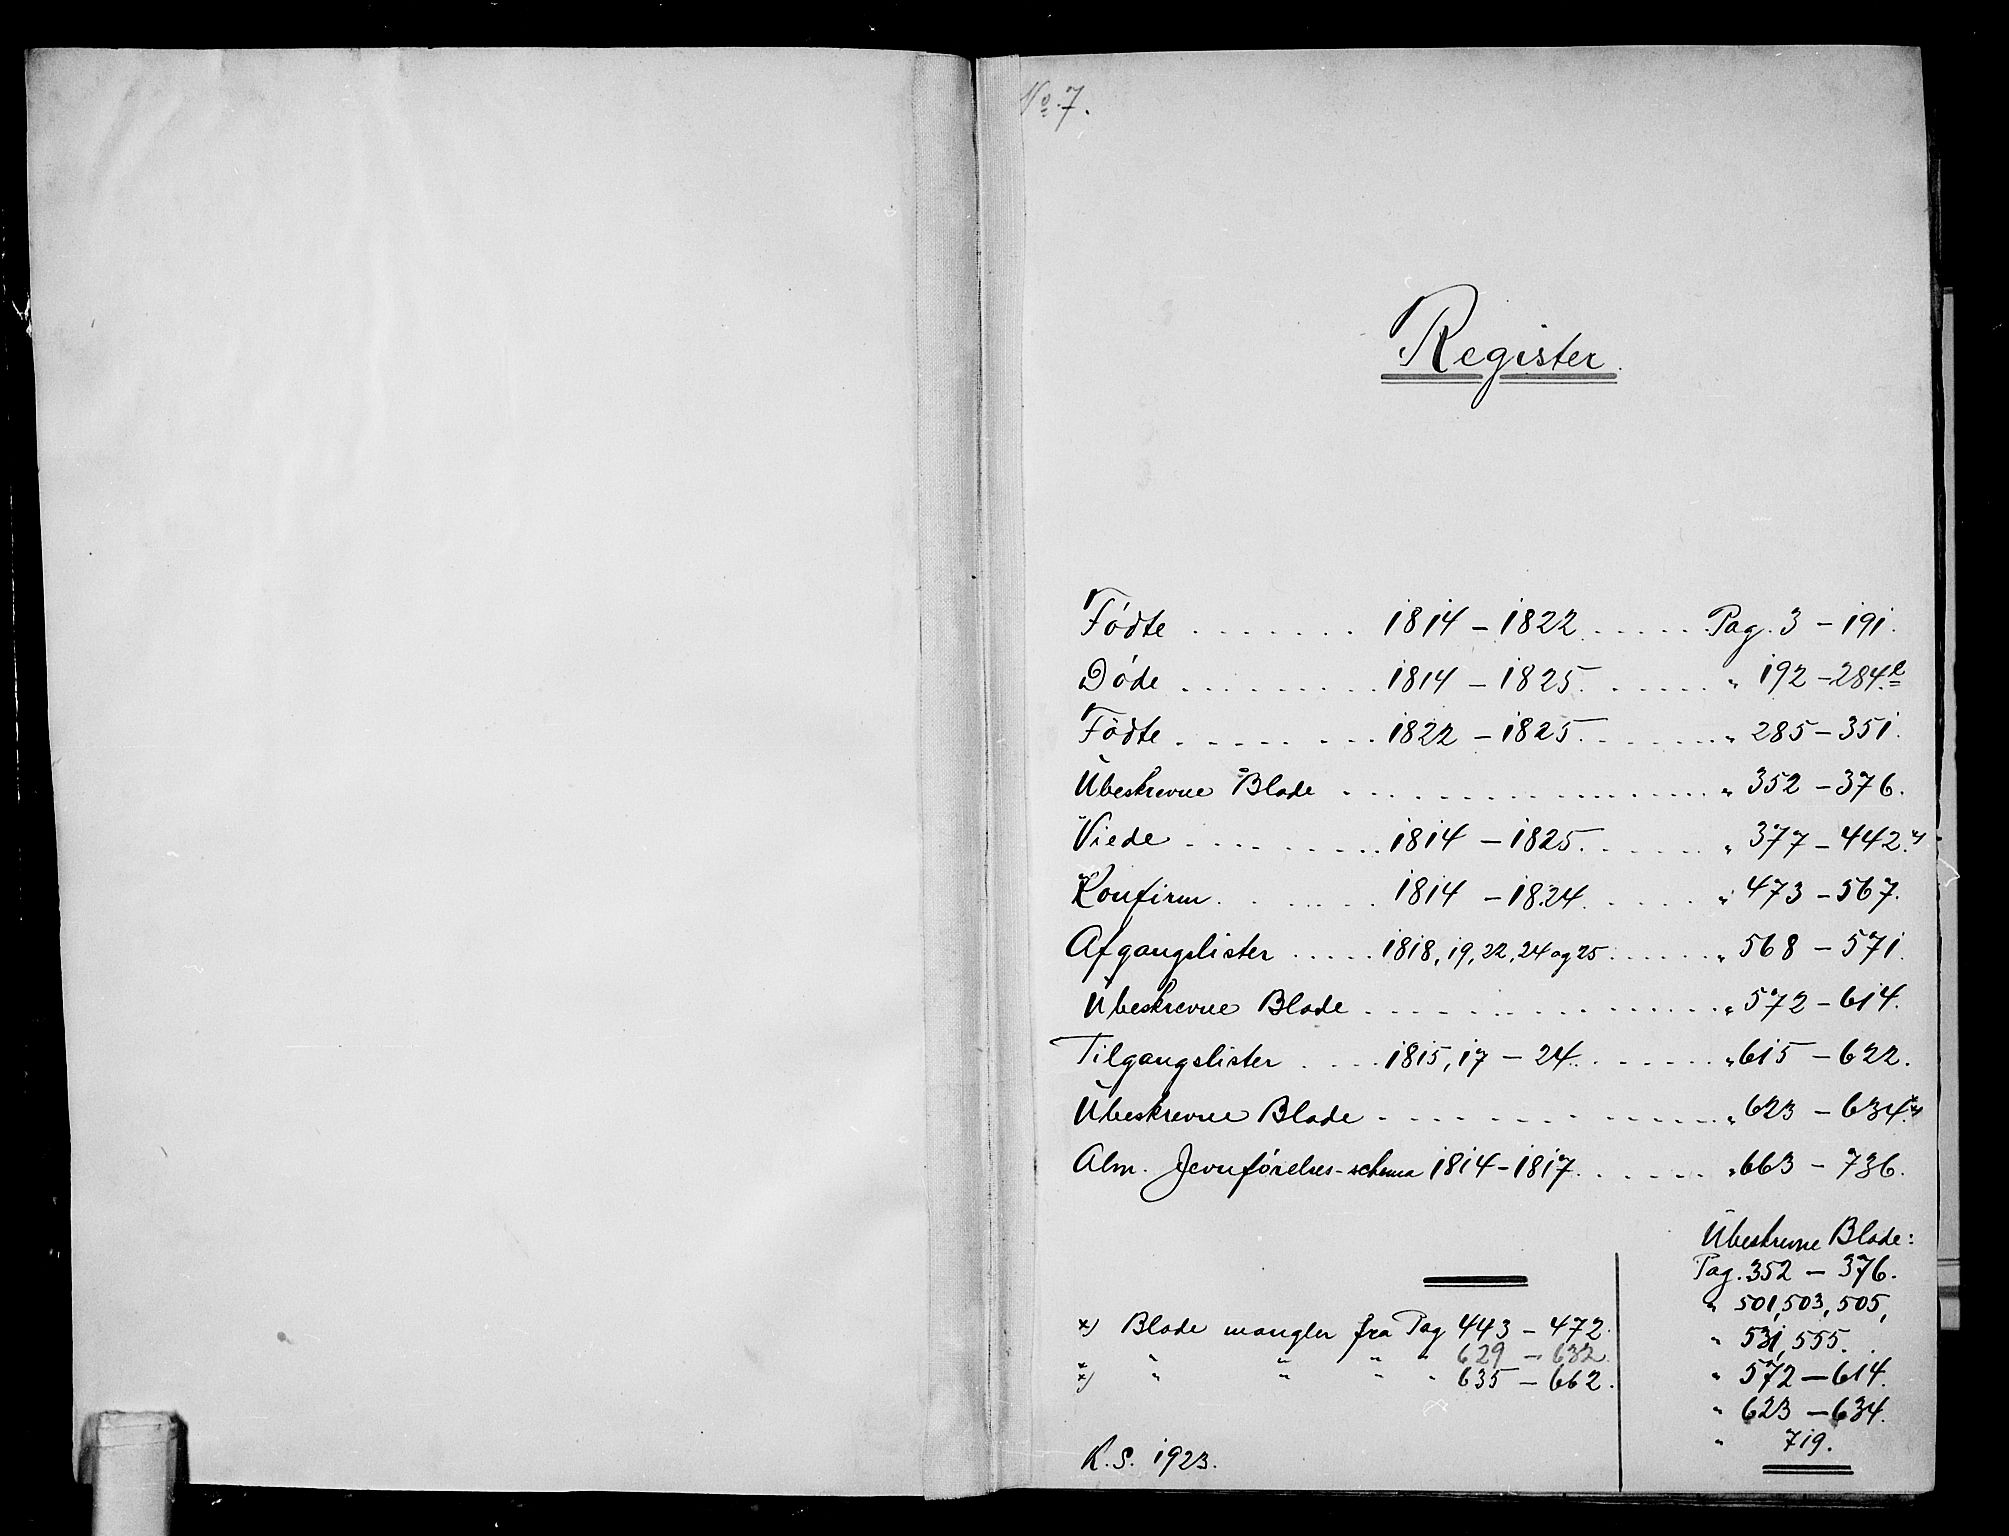 No. 7.
Register.
Fødte . . . . . . . 1814 – 1822 . . . . . Pag. 3 – 191.
Døde . . . . . . . . . 1814 – 1825 . . . . . . " 192 – 284.
Fødte . . . . . . . . 1822 – 1825 . . . . . . " 285 – 351.
Ubeskrevne Blade . . . . . . . . . . . . . . " 352 – 376.
Viede . . . . . . . . . 1814 – 1825 . . . . . . " 377 – 442. x)
Konfirm. . . . . . . . 1814 – 1824 . . . . . . " 473 – 567.
Afgangslister . . . . . 1818, 19, 22, 24 og 25 . . . . . . " 568 – 571.
Ubeskrevne Blade . . . . . . . . . . . . . . " 572 – 614.
Tilgangslister . . . . 1815, 17 – 24. . . . . . . " 615 – 622.
Ubeskrevne Blade . . . . . . . . . . . . . . " 623 – 634. x)
Alm. Jevnførelses-schema 1814 – 1817. . . . . . " 663 – 736.
x) Blade mangler fra Pag 443 – 472.
" " " " " 629 – 632.
x) " " " " 635 – 662.
K. S. 1923.
Ubeskrevne Blade:
Pag. 352 – 376.
" 501, 503, 505,
" 531, 555.
" 572 – 614.
" 623 – 634.
" 719.